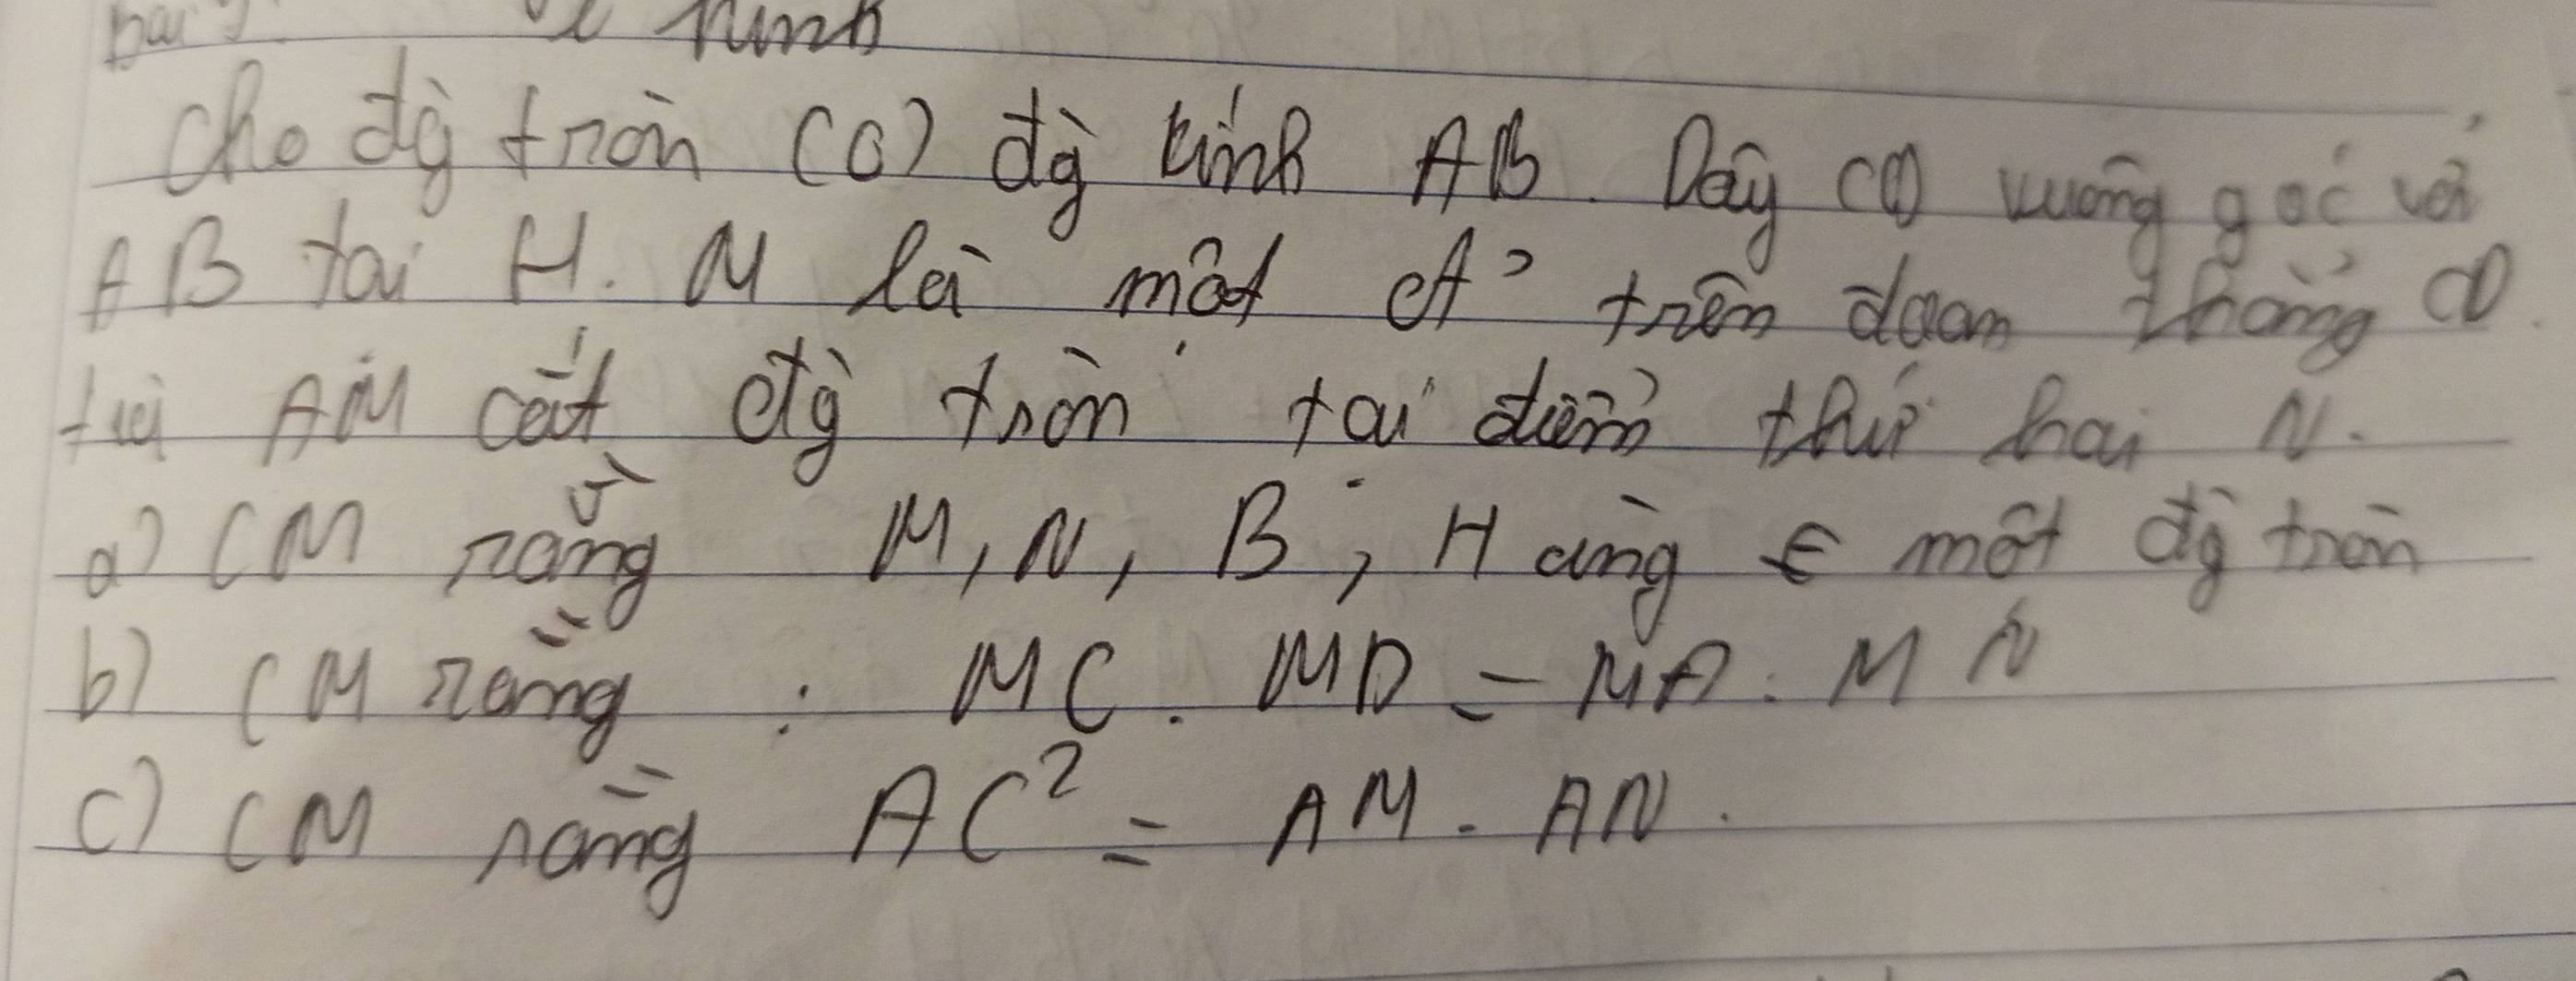 hình
Cho đg tròn (O) đg kính AB. Dây CD vuông góc với
AB tại H. M là một đ' trên đoạn thẳng CD.
tia AM cắt đg tròn tại điểm thứ hai N.
a) CM rằng M, N, B, H cùng ∈ một đg tròn
b) CM rằng : MC. MD = MA. MN
c) CM rằng AC² = AM. AN.